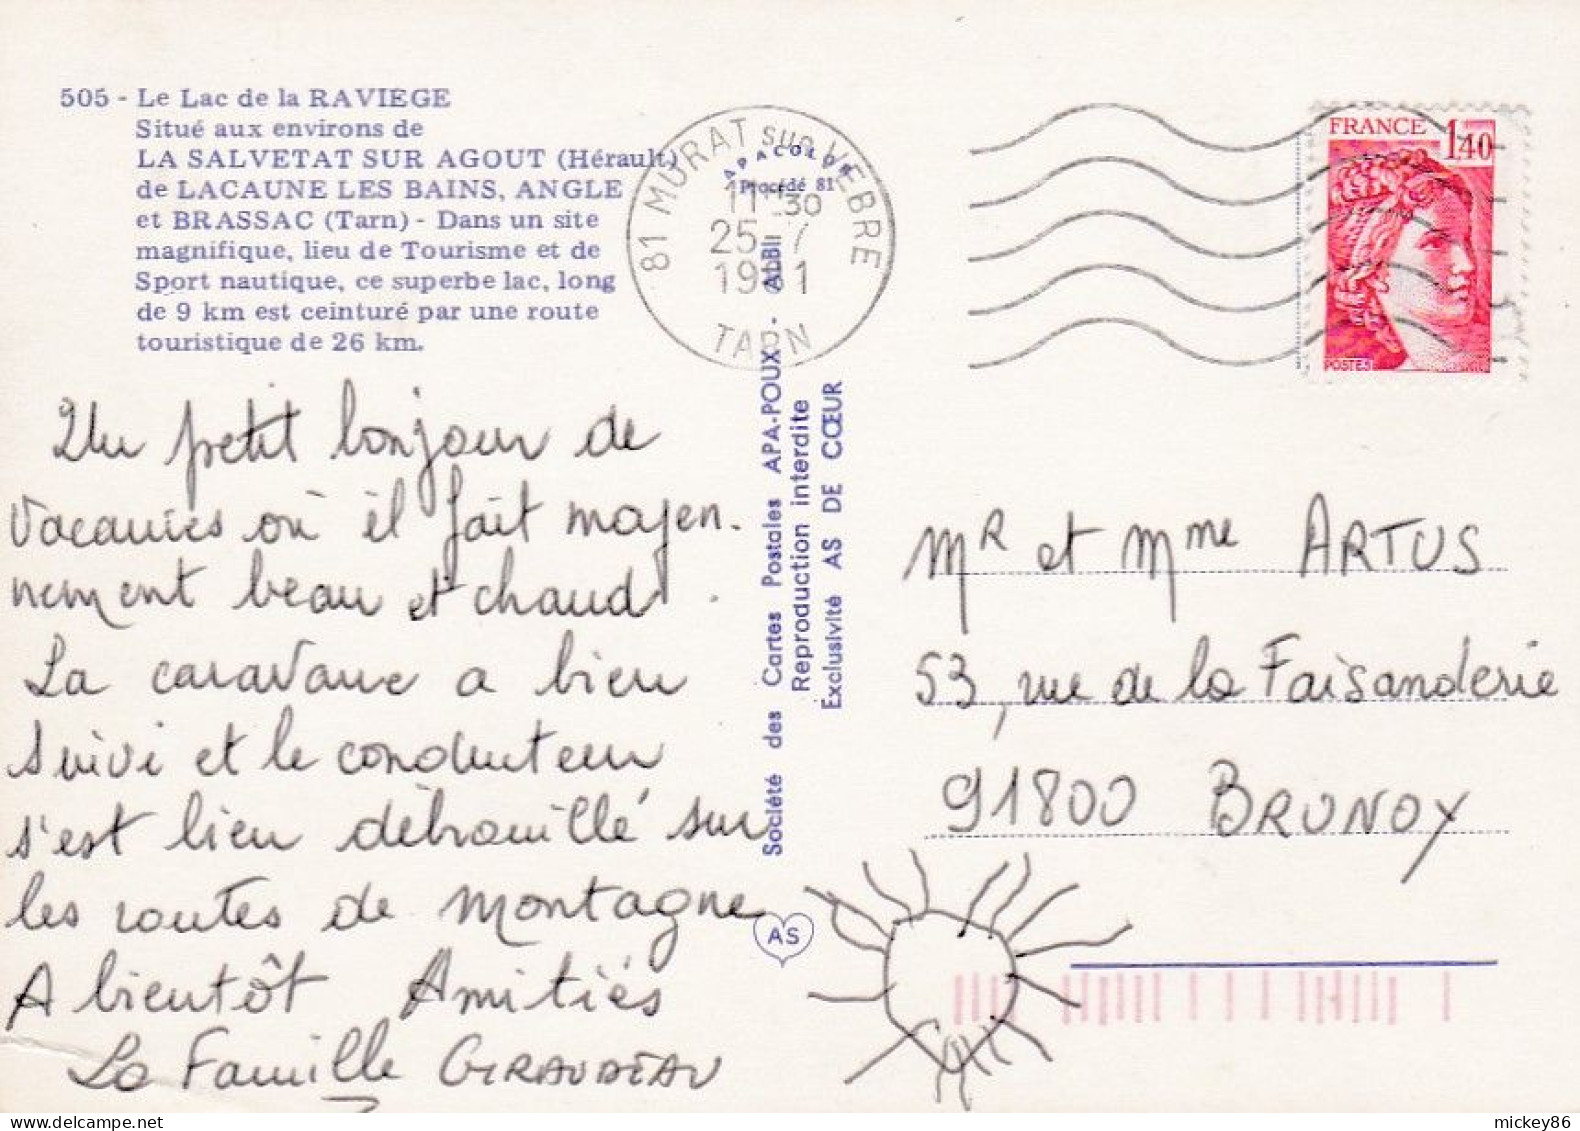 505 - Le Lac de la RAVIEGE
Situé aux environs de
LA SALVETAT SUR AGOUT (Hérault)
de LACAUNE LES BAINS, ANGLE
et BRASSAC (Tarn) - Dans un site
magnifique, lieu de Tourisme et de
Sport nautique, ce superbe lac, long
de 9 km est ceinturé par une route
touristique de 26 km.
Un petit bonjour de
vacances où il fait moyen.
nement beau et chaud.
La caravane a bien
suivi et le conducteur
s'est bien débrouillé sur
les routes de montagne
A bientôt Amitiés
La Famille GIRAUDEAU
81 MURAT sur VEBRE
11H30
25-7
1981
TARN
APACOLOR
Procédé 81
Société des Cartes Postales APA-POUX - ALBI
Reproduction interdite
Exclusivité AS DE CŒUR
AS
FRANCE 1,40
POSTES
MR et Mme ARTUS
53, rue de la Faisanderie
91800 BRUNOY
mickey86